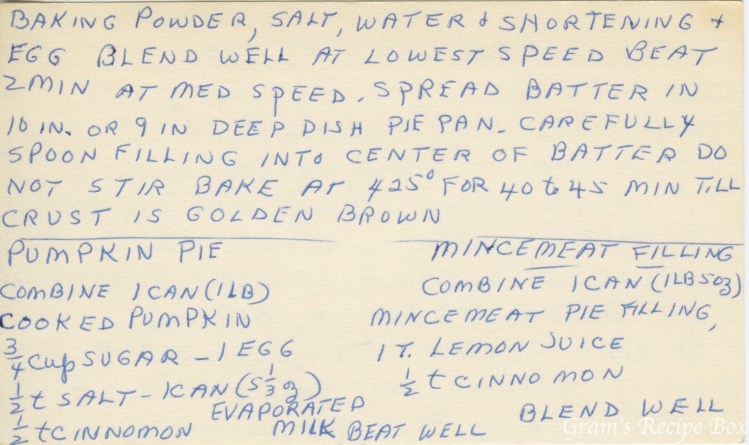 BAKING POWDER, SALT, WATER & SHORTENING +
EGG BLEND WELL AT LOWEST SPEED BEAT
2 MIN AT MED SPEED. SPREAD BATTER IN
10 IN. OR 9 IN DEEP DISH PIE PAN. CAREFULLY
SPOON FILLING INTO CENTER OF BATTER DO
NOT STIR BAKE AT 425° FOR 40 to 45 MIN TILL
CRUST IS GOLDEN BROWN
PUMPKIN PIE
COMBINE 1 CAN (1 LB)
COOKED PUMPKIN
3/4 Cup SUGAR - 1 EGG
1/2 t SALT - 1 CAN (5 1/3 oz)
EVAPORATED
1/2 t CINNOMON MILK BEAT WELL
MINCEMEAT FILLING
COMBINE 1 CAN (1 LB 5 oz)
MINCEMEAT PIE FILLING,
1 T. LEMON JUICE
1/2 t CINNOMON
BLEND WELL
Gram's Recipe Box